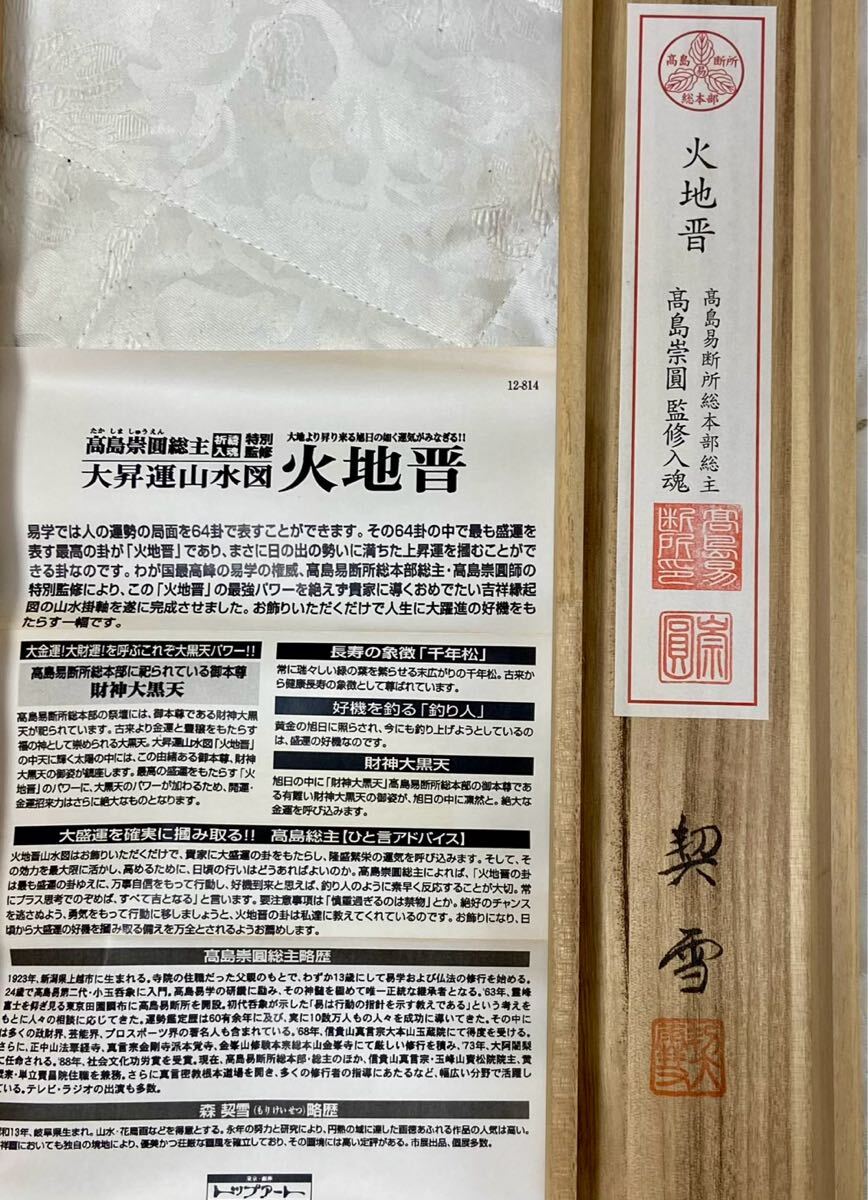 12-814
たか しま しゅうえん
高島崇圓総主 祈祷入魂 特別監修
大地より昇り来る旭日の如く運気がみなぎる!!
大昇運山水図 火地晋
易学では人の運勢の局面を64卦で表すことができます。その64卦の中で最も盛運を
表す最高の卦が「火地晋」であり、まさに日の出の勢いに満ちた上昇運を掴むことがで
きる卦なのです。わが国最高峰の易学の権威、高島易断所総本部総主・高島崇圓師の
特別監修により、この「火地晋」の最強パワーを絶えず貴家に導くおめでたい吉祥縁起
図の山水掛軸を遂に完成させました。お飾りいただくだけで人生に大躍進の好機をも
たらす一幅です。
大金運!大財運!を呼ぶこれぞ大黒天パワー!!
高島易断所総本部に祀られている御本尊
財神大黒天
高島易断所総本部の祭壇には、御本尊である財神大黒
天が祀られています。古来より金運と豊穣をもたらす
福の神として崇められる大黒天。大昇運山水図「火地晋」
の中天に輝く太陽の中には、この由緒ある御本尊、財神
大黒天の御姿が鎮座します。最高の盛運をもたらす「火
地晋」のパワーに、大黒天のパワーが加わるため、開運・
金運招来力はさらに絶大なものとなります。
長寿の象徴「千年松」
常に瑞々しい緑の葉を繁らせる末広がりの千年松。古来か
ら健康長寿の象徴として尊ばれています。
好機を釣る「釣り人」
黄金の旭日に照らされ、今にも釣り上げようとしているの
は、盛運の好機なのです。
財神大黒天
旭日の中に「財神大黒天」高島易断所総本部の御本尊であ
る有難い財神大黒天の御姿が、旭日の中に凛然と。絶大な
金運を呼び込みます。
大盛運を確実に掴み取る!! 高島総主【ひと言アドバイス】
火地晋山水図はお飾りいただくだけで、貴家に大盛運の卦をもたらし、隆盛繁栄の運気を呼び込みます。そして、そ
の効力を最大限に活かし、高めるために、日頃の行いはどうあればよいのか。高島崇圓総主によれば、「火地晋の卦
は最も盛運の卦ゆえに、万事自信をもって行動し、好機到来と思えば、釣り人のように素早く反応することが大切。常
にプラス思考でのぞめば、すべて吉となる」と言います。要注意事項は「慎重過ぎるのは禁物」とか。絶好のチャンス
を逃さぬよう、勇気をもって行動に移しましょうと、火地晋の卦は私達に教えてくれているのです。お飾りになり、日
頃から大盛運の好機を掴み取る備えを万全とされるようお薦めします。
高島崇圓総主略歴
1923年、新潟県上越市に生まれる。寺院の住職だった父親のもとで、わずか13歳にして易学および仏法の修行を始める。
24歳で高島易第二代・小玉呑象に入門。高島易学の研鑽に励み、その神髄を極めて唯一正統な継承者となる。'63年、霊峰
富士を仰ぎ見る東京田園調布に高島易断所を開設。初代呑象が示した「易は行動の指針を示す教えである」という考えを
もとに人々の相談に応じてきた。運勢鑑定歴は60有余年に及び、実に10数万人もの人々を成功に導いてきた。その中に
は多くの政財界、芸能界、プロスポーツ界の著名人も含まれている。'68年、信貴山真言宗大本山玉蔵院にて得度を受ける。
さらに、正中山法華経寺、真言宗金剛寺派本覚寺、金峯山修験本宗総本山金峯寺にて厳しい修行を積み、'73年、大阿闍梨
に任命される。'88年、社会文化功労賞を受賞。現在、高島易断所総本部・総主のほか、信貴山真言宗・玉峰山寶松院院主、
栄来・単立寶昌院住職を兼務。さらに真言密教根本道場を開き、多くの修行者の指導にあたるなど、幅広い分野で活躍し
ている。テレビ・ラジオの出演も多数。
森 契雪(もりけいせつ)略歴
和13年、岐阜県生まれ。山水・花鳥画などを得意とする。永年の努力と研究により、円熟の域に達した画徳あふれる作品の人気は高い。
祥画においても独自の境地により、優美かつ荘厳な画風を確立しており、その画境には高い定評がある。市展出品、個展多数。
東京・銀座
トップアート
高島易断所
総本部
火地晋
高島易断所総本部総主
高島崇圓 監修入魂
高島易断所印
崇圓
契雪